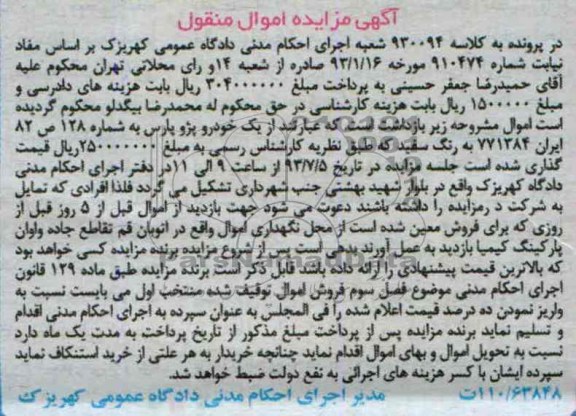 آگهی مزایده اموال منقول
در پرونده به کلاسه ۹۳۰۰۹۴ شعبه اجرای احکام مدنی دادگاه عمومی کهریزک بر اساس مفاد
نیابت شماره ۹۱۰۴۷۴ مورخه ۹۳/۱/۱۶ صادره از شعبه ۱۴و رای محلاتی تهران محکوم علیه
آقای حمیدرضا جعفر حسینی به پرداخت مبلغ ۳۰۴۰۰۰۰۰۰ ریال بابت هزینه های دادرسی و
مبلغ ۱۵۰۰۰۰۰ ریال بابت هزینه کارشناسی در حق محکوم له محمدرضا بیگدلو محکوم گردیده
است اموال مشروحه زیر بازداشت است که عبارتند از یک خودرو پژو پارس به شماره ۱۲۸ ص ۸۲
ایران ۷۷۱۳۸۴ به رنگ سفید که طبق نظریه کارشناس رسمی به مبلغ ۲۵۰۰۰۰۰۰۰۰ریال قیمت
گذاری شده است جلسه مزایده در تاریخ ۹۳/۷/۵ از ساعت ۹ الی ۱۱در دفتر اجرای احکام مدنی
دادگاه کهریزک واقع در بلوار شهید بهشتی جنب شهرداری تشکیل می گردد فلذا افرادی که تمایل
به شرکت د رمزایده را داشته باشند دعوت می شود جهت بازدید از اموال قبل از ۵ روز قبل از
روزی که برای فروش معین شده است از محل نگهداری اموال واقع در اتوبان قم تقاطع جاده واوان
پارکینگ کیمیا بازدید به عمل آورند بدهی است پس از شروع مزایده برنده مزایده کسی خواهد بود
که بالاترین قیمت پیشنهادی را ارائه داده باشد قابل ذکر است برنده مزایده طبق ماده ۱۲۹ قانون
اجرای احکام مدنی موضوع فصل سوم فروش اموال توقیف شده منتخب اول می بایست نسبت به
واریز نمودن ده درصد قیمت اعلام شده را فی المجلس به عنوان سپرده به اجرای احکام مدنی اقدام
و تسلیم نماید برنده مزایده پس از پرداخت مبلغ مذکور از تاریخ پرداخت به مدت یک ماه دارد
نسبت به تحویل اموال و بهای اموال اقدام نماید چنانچه خریدار به هر علتی از خرید استنکاف نماید
سپرده ایشان با کسر هزینه های اجرائی به نفع دولت ضبط خواهد شد.
۱۱۰/۶۳۸۴۸ت مدیر اجرای احکام مدنی دادگاه عمومی کهریزک
ParsNamadData